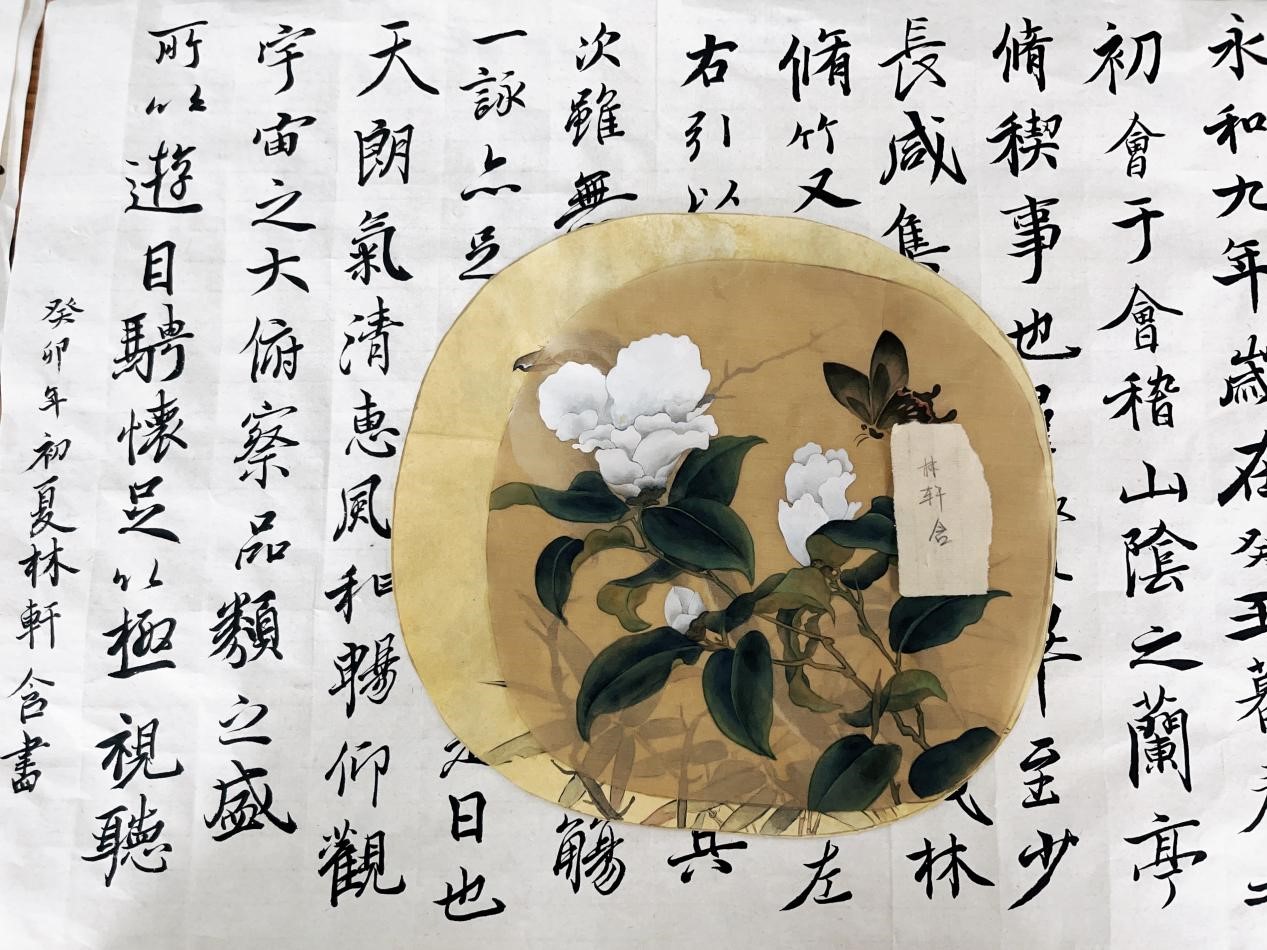 永和九年歲在癸丑暮春
初會于會稽山陰之蘭亭
脩稧事也 至少
長咸集 林
脩竹又 左
右引以
次雖無 觴
一詠亦足 日也
天朗氣清惠風和暢仰觀
宇宙之大俯察品類之盛
所以遊目騁懷足以極視聽
癸卯年初夏林軒含書
林轩含